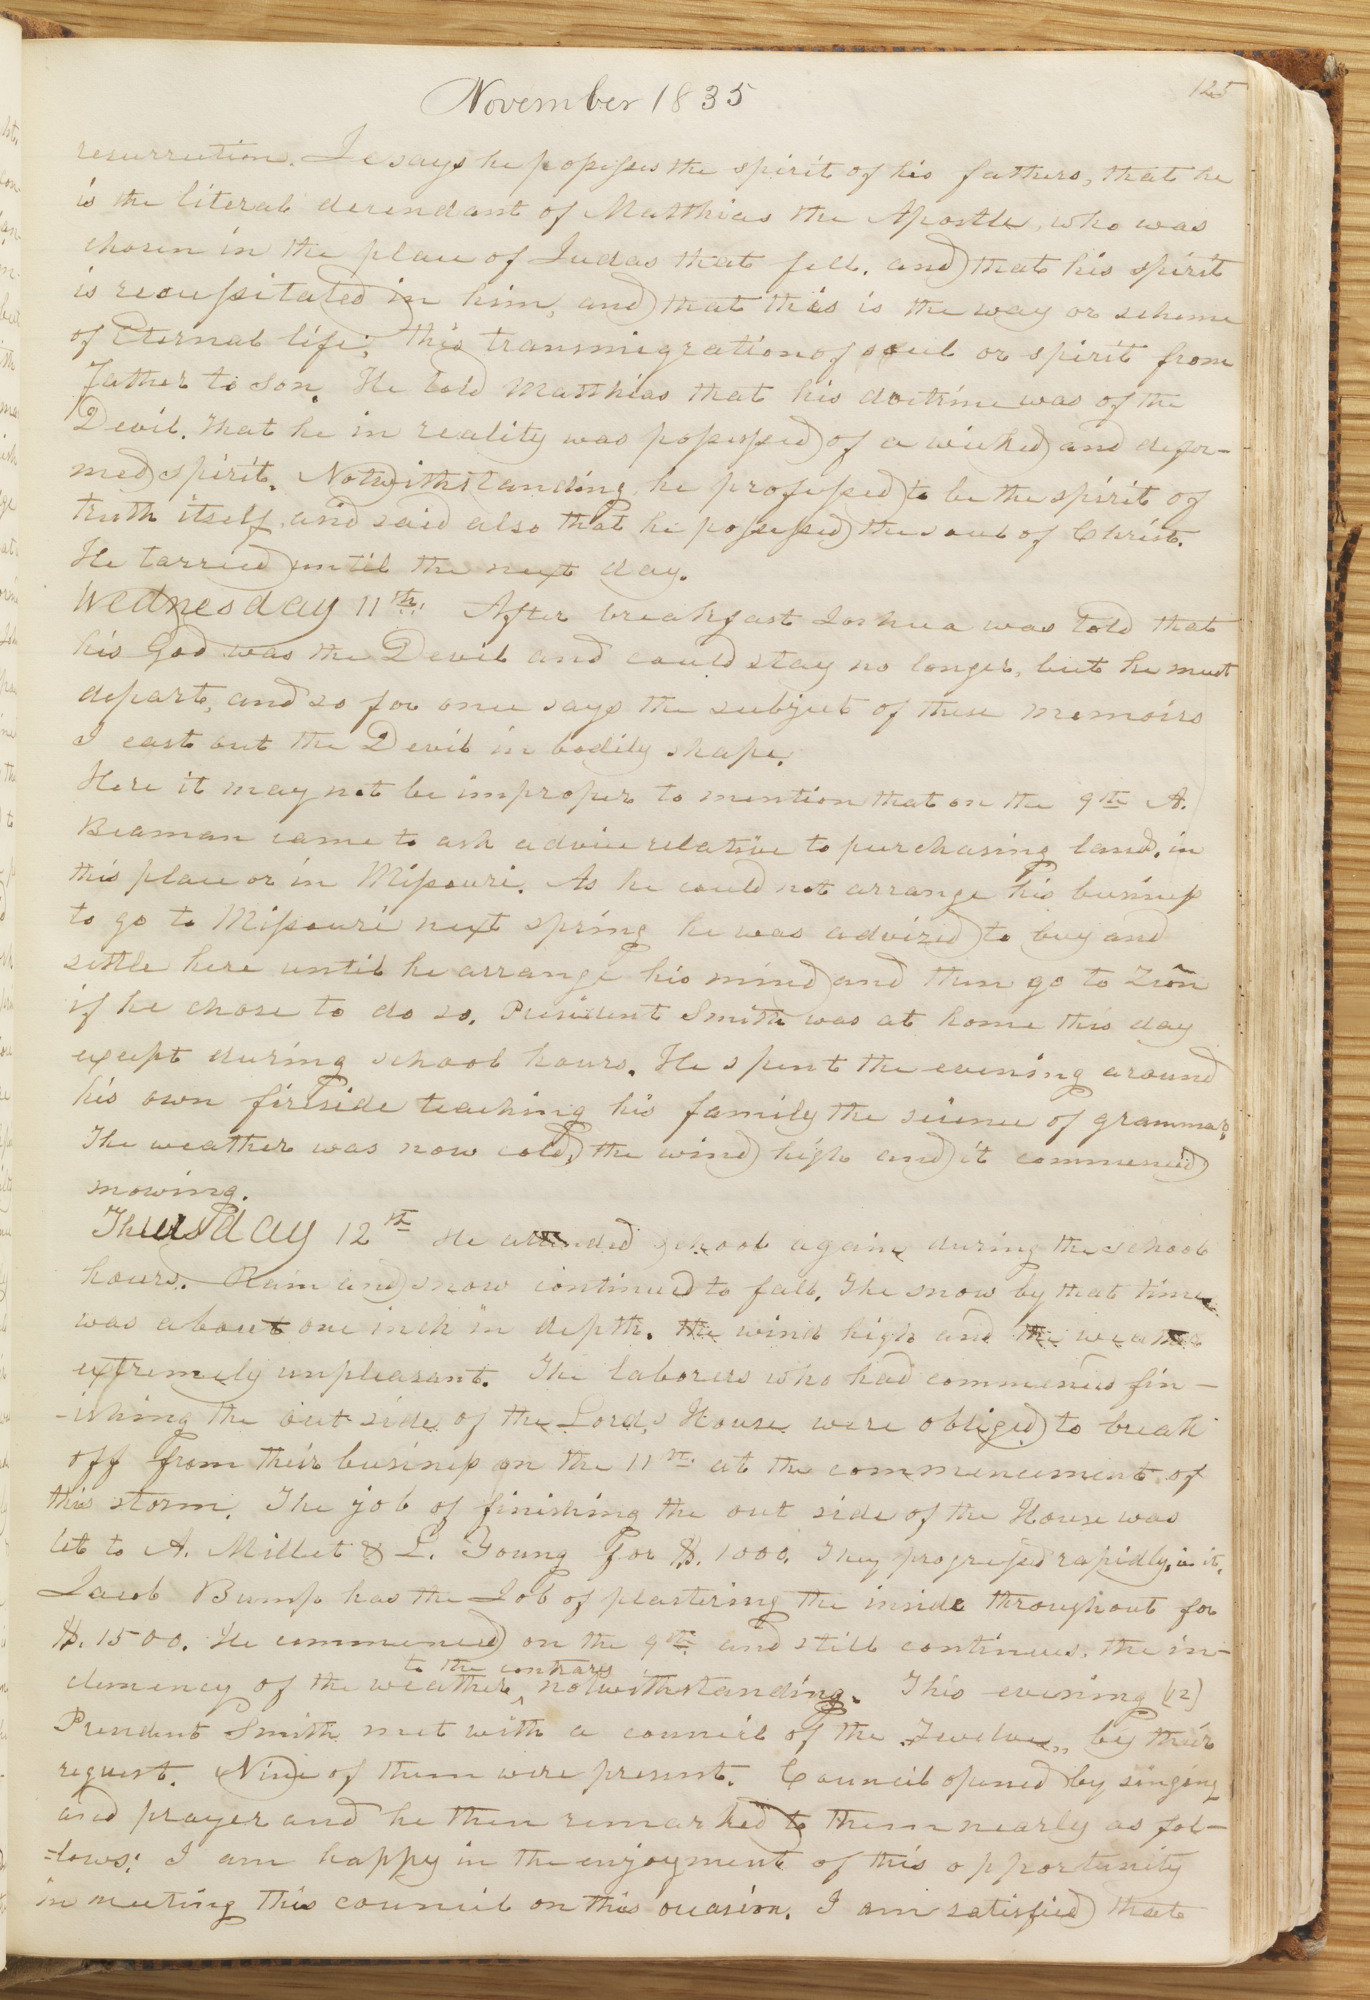 November 1835
125
resurrection. He says he possesses the spirit of his fathers, that he
is the literal decendant of Matthias the Apostle, who was
chosen in the place of Judas that fell. and that his spirit
is recussitated in him, and that this is the way or scheme
of Eternal life; this transmigration of soul or spirit from
Father to Son. He told Matthias that his doctrine was of the
Devil. That he in reality was possessed of a wicked and defor-
med spirit. Notwithstanding he professed to be the spirit of
truth itself, and said also that he possessed the soul of Christ.
He tarried until the next day.
Wednesday 11th. After breakfast Joshua was told that
his God was the Devil and could stay no longer, but he must
depart, and so for once says the subject of these memoirs
I cast out the Devil in bodily shape.
Here it may not be improper to mention that on the 9th A.
Beaman came to ask advice relative to purchasing land, in
this place or in Missouri. As he could not arrange his business
to go to Missouri next spring he was advized to buy and
settle here until he arrange his mind and then go to Zion
if he chose to do so. President Smith was at home this day
except during school hours. He spent the evening around
his own fireside teaching his family the science of grammar.
The weather was now cold, the wind high and it commenced
snowing.
Thursday 12th He attended school again during the school
hours. Rain and snow continued to fall. The snow by that time
was about one inch in depth. the wind high and the weather
extremely unpleasant. The laborers who had commenced fin-
-ishing the out side of the Lord,s House were obliged to break
off from their business on the 11th. at the commencement of
this storm. The job of finishing the out side of the House was
let to A. Millet & L. Young for $. 1000. They progressed rapidly, in it.
Jacob Bump has the Job of plastering the inside throughout for
$. 1500. He commenced on the 9th and still continues. the in-
to the contrary
clemency of the weather ^ notwithstanding. This evening [12]
President Smith met with a council of the Twelve,, by their
request. Nine of them were present. Council opened by singing
and prayer and he then remarked to them nearly as fol-
-lows: I am happy in the enjoyment of this opportunity
in meeting this council on this occasion. I am satisfied that